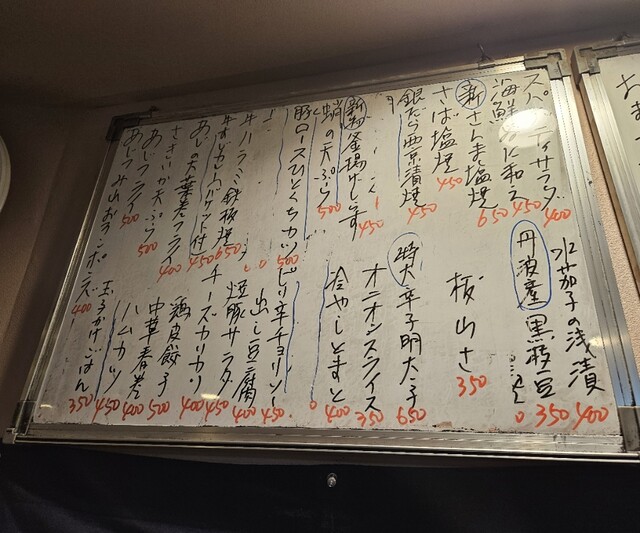 スパ ティサラダ 400
海鮮 に和え 450
新さんま塩焼 650
さば塩焼 450
銀だら西京漬焼 450
新物釜揚げしらす 450
蛸の天ぷら 500
豚ロースひとくちカツ 500
牛ハラミ鉄板焼
牛すじカレーバゲット付 650
あじの大葉巻フライ 450
さきいか天ぷら 400
あじフライ 500
あじ 山おろしポンズ 500
水茄子の浅漬 400
丹波産黒枝豆 350
板わさ 350
特大辛子明太子 650
オニオンスライス 350
冷やしとまと 400
ピリ辛チョリソー 450
出し豆腐 400
焼豚サラダ 450
チーズカリカリ 400
鶏皮餃子 500
中華春巻 400
ハムカツ 450
玉子かけごはん 350